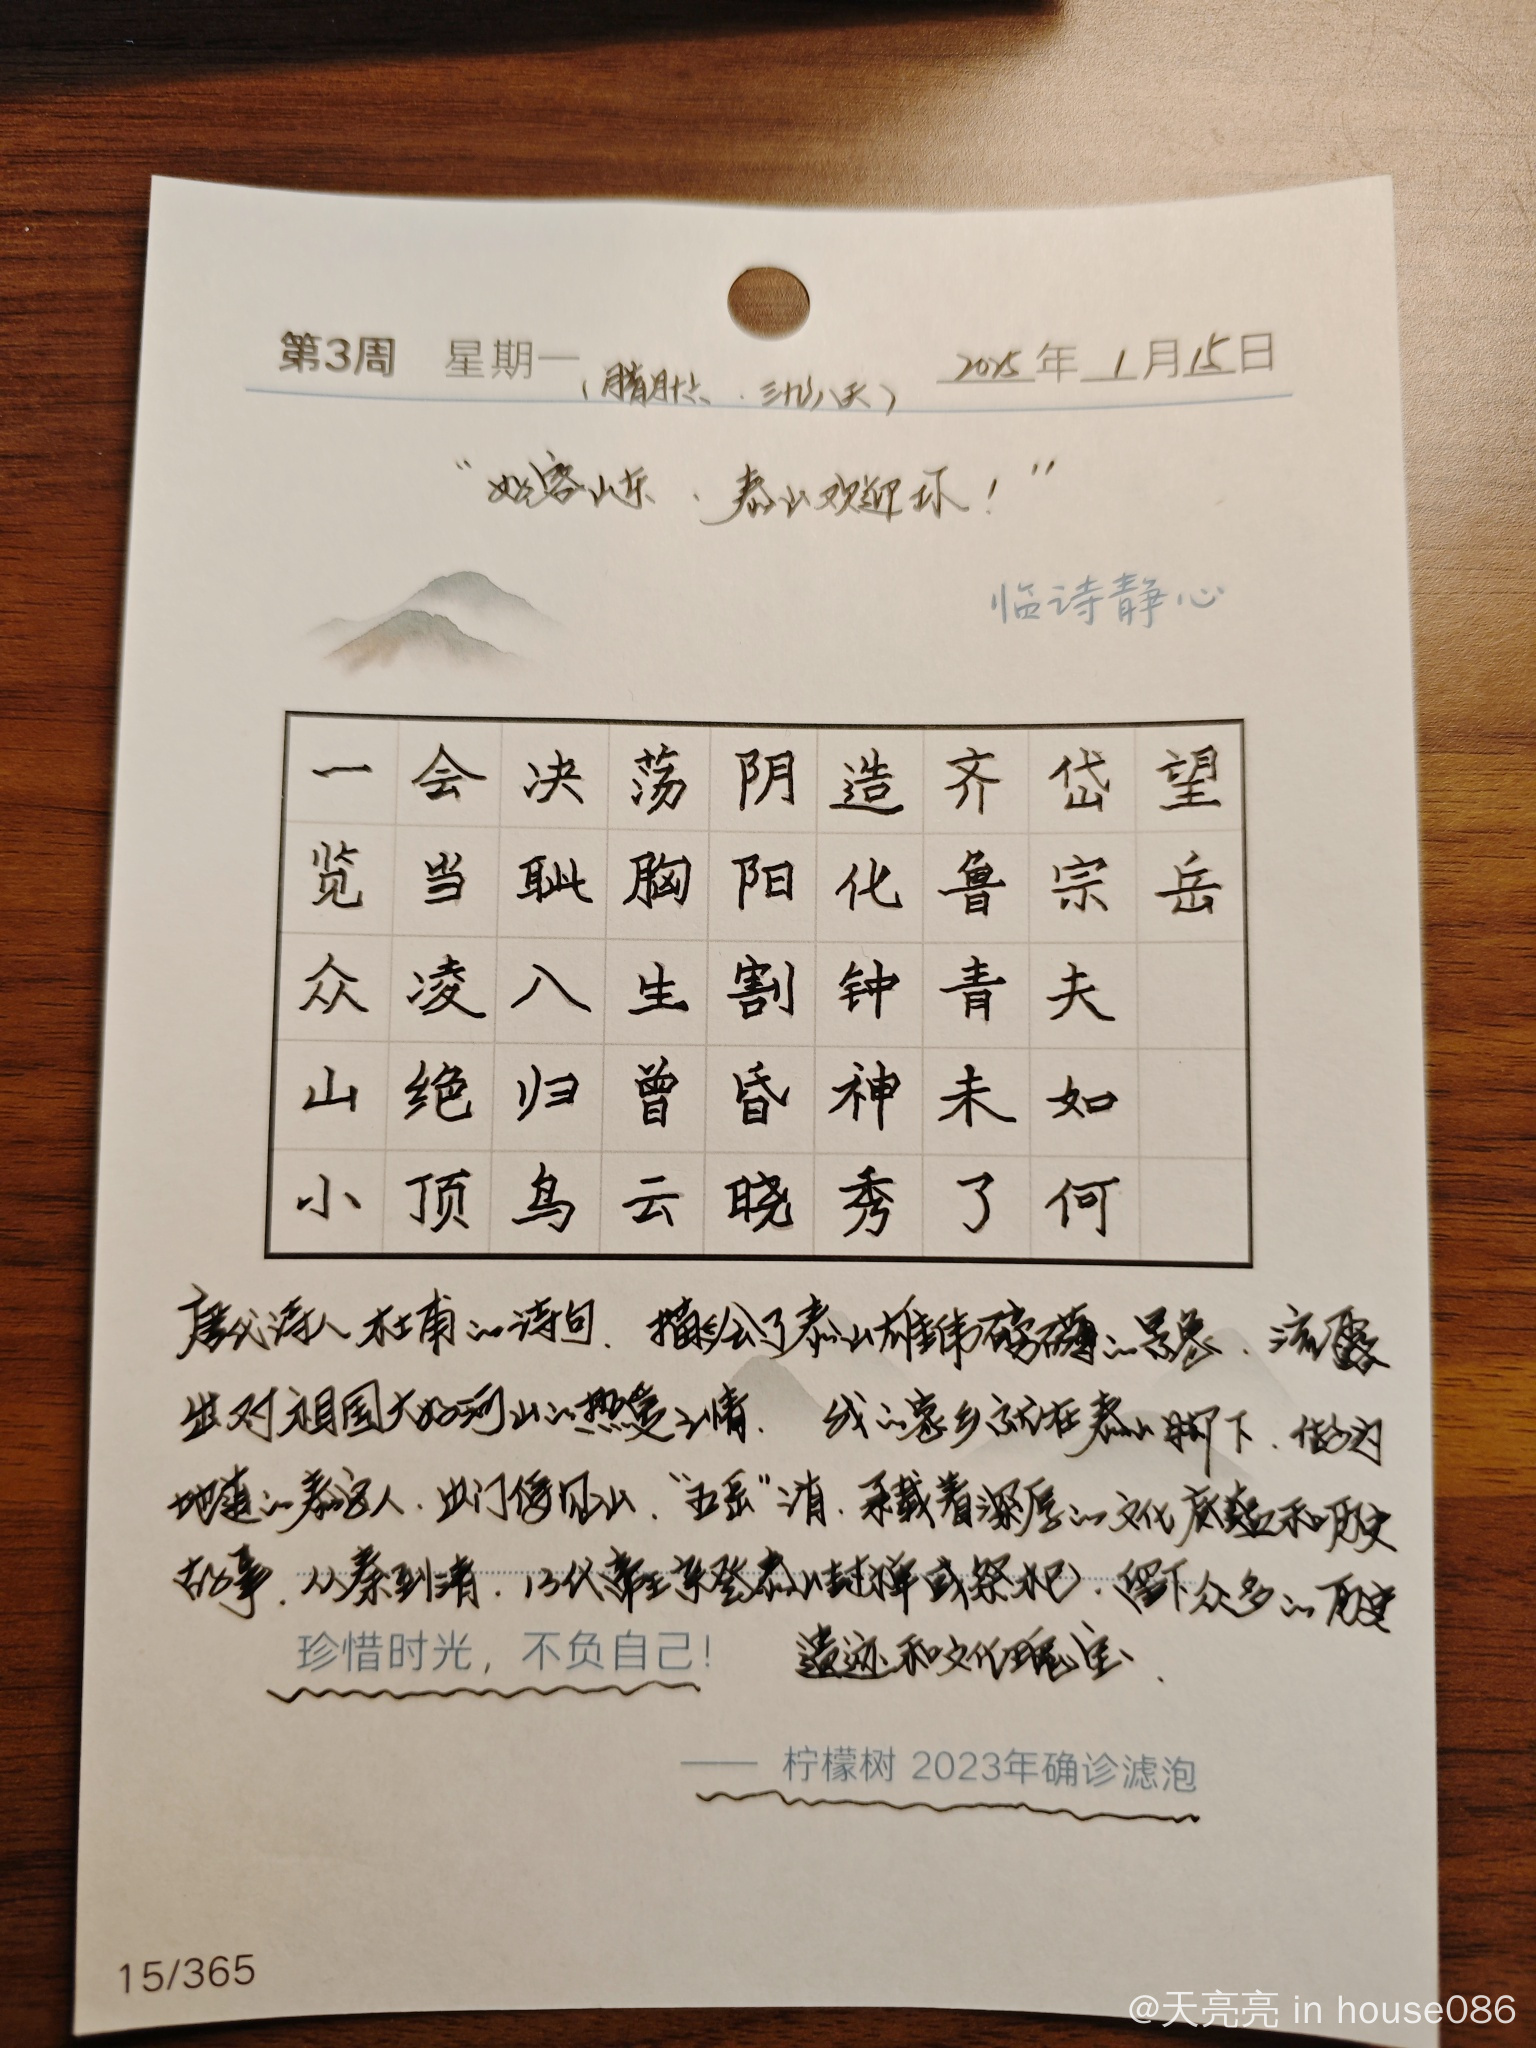 第3周 星期一(腊月十六、三九八天) 2025年1月15日
“好客山东、泰山欢迎你！”
临诗静心
望岳
岱宗夫如何
齐鲁青未了
造化钟神秀
阴阳割昏晓
荡胸生曾云
决眦入归鸟
会当凌绝顶
一览众山小
唐代诗人杜甫的诗句、描绘了泰山雄伟磅礴的景象、流露
出对祖国大好河山的热爱之情. 我的家乡就在泰山脚下、做为
地道的泰安人、出门便见山、“五岳”之首、承载着深厚的文化底蕴和历史
故事、从秦到清、13代帝王亲登泰山封禅或祭祀、留下众多的历史
遗迹和文化瑰宝.
珍惜时光，不负自己！
—— 柠檬树 2023年确诊滤泡
15/365
@天亮亮 in house086